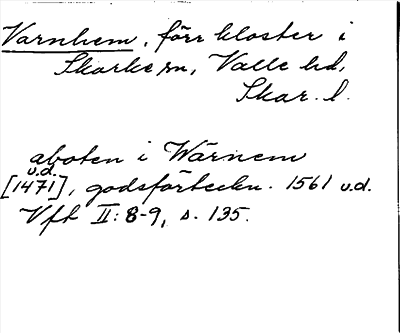 Varnhem, förr kloster i
Skarke sn, Valle hd,
Skar. l.
aboten i Wärnem
u.d.
[1471], godsförteckn. 1561 u.d.
Vft II: 8-9, s. 135.